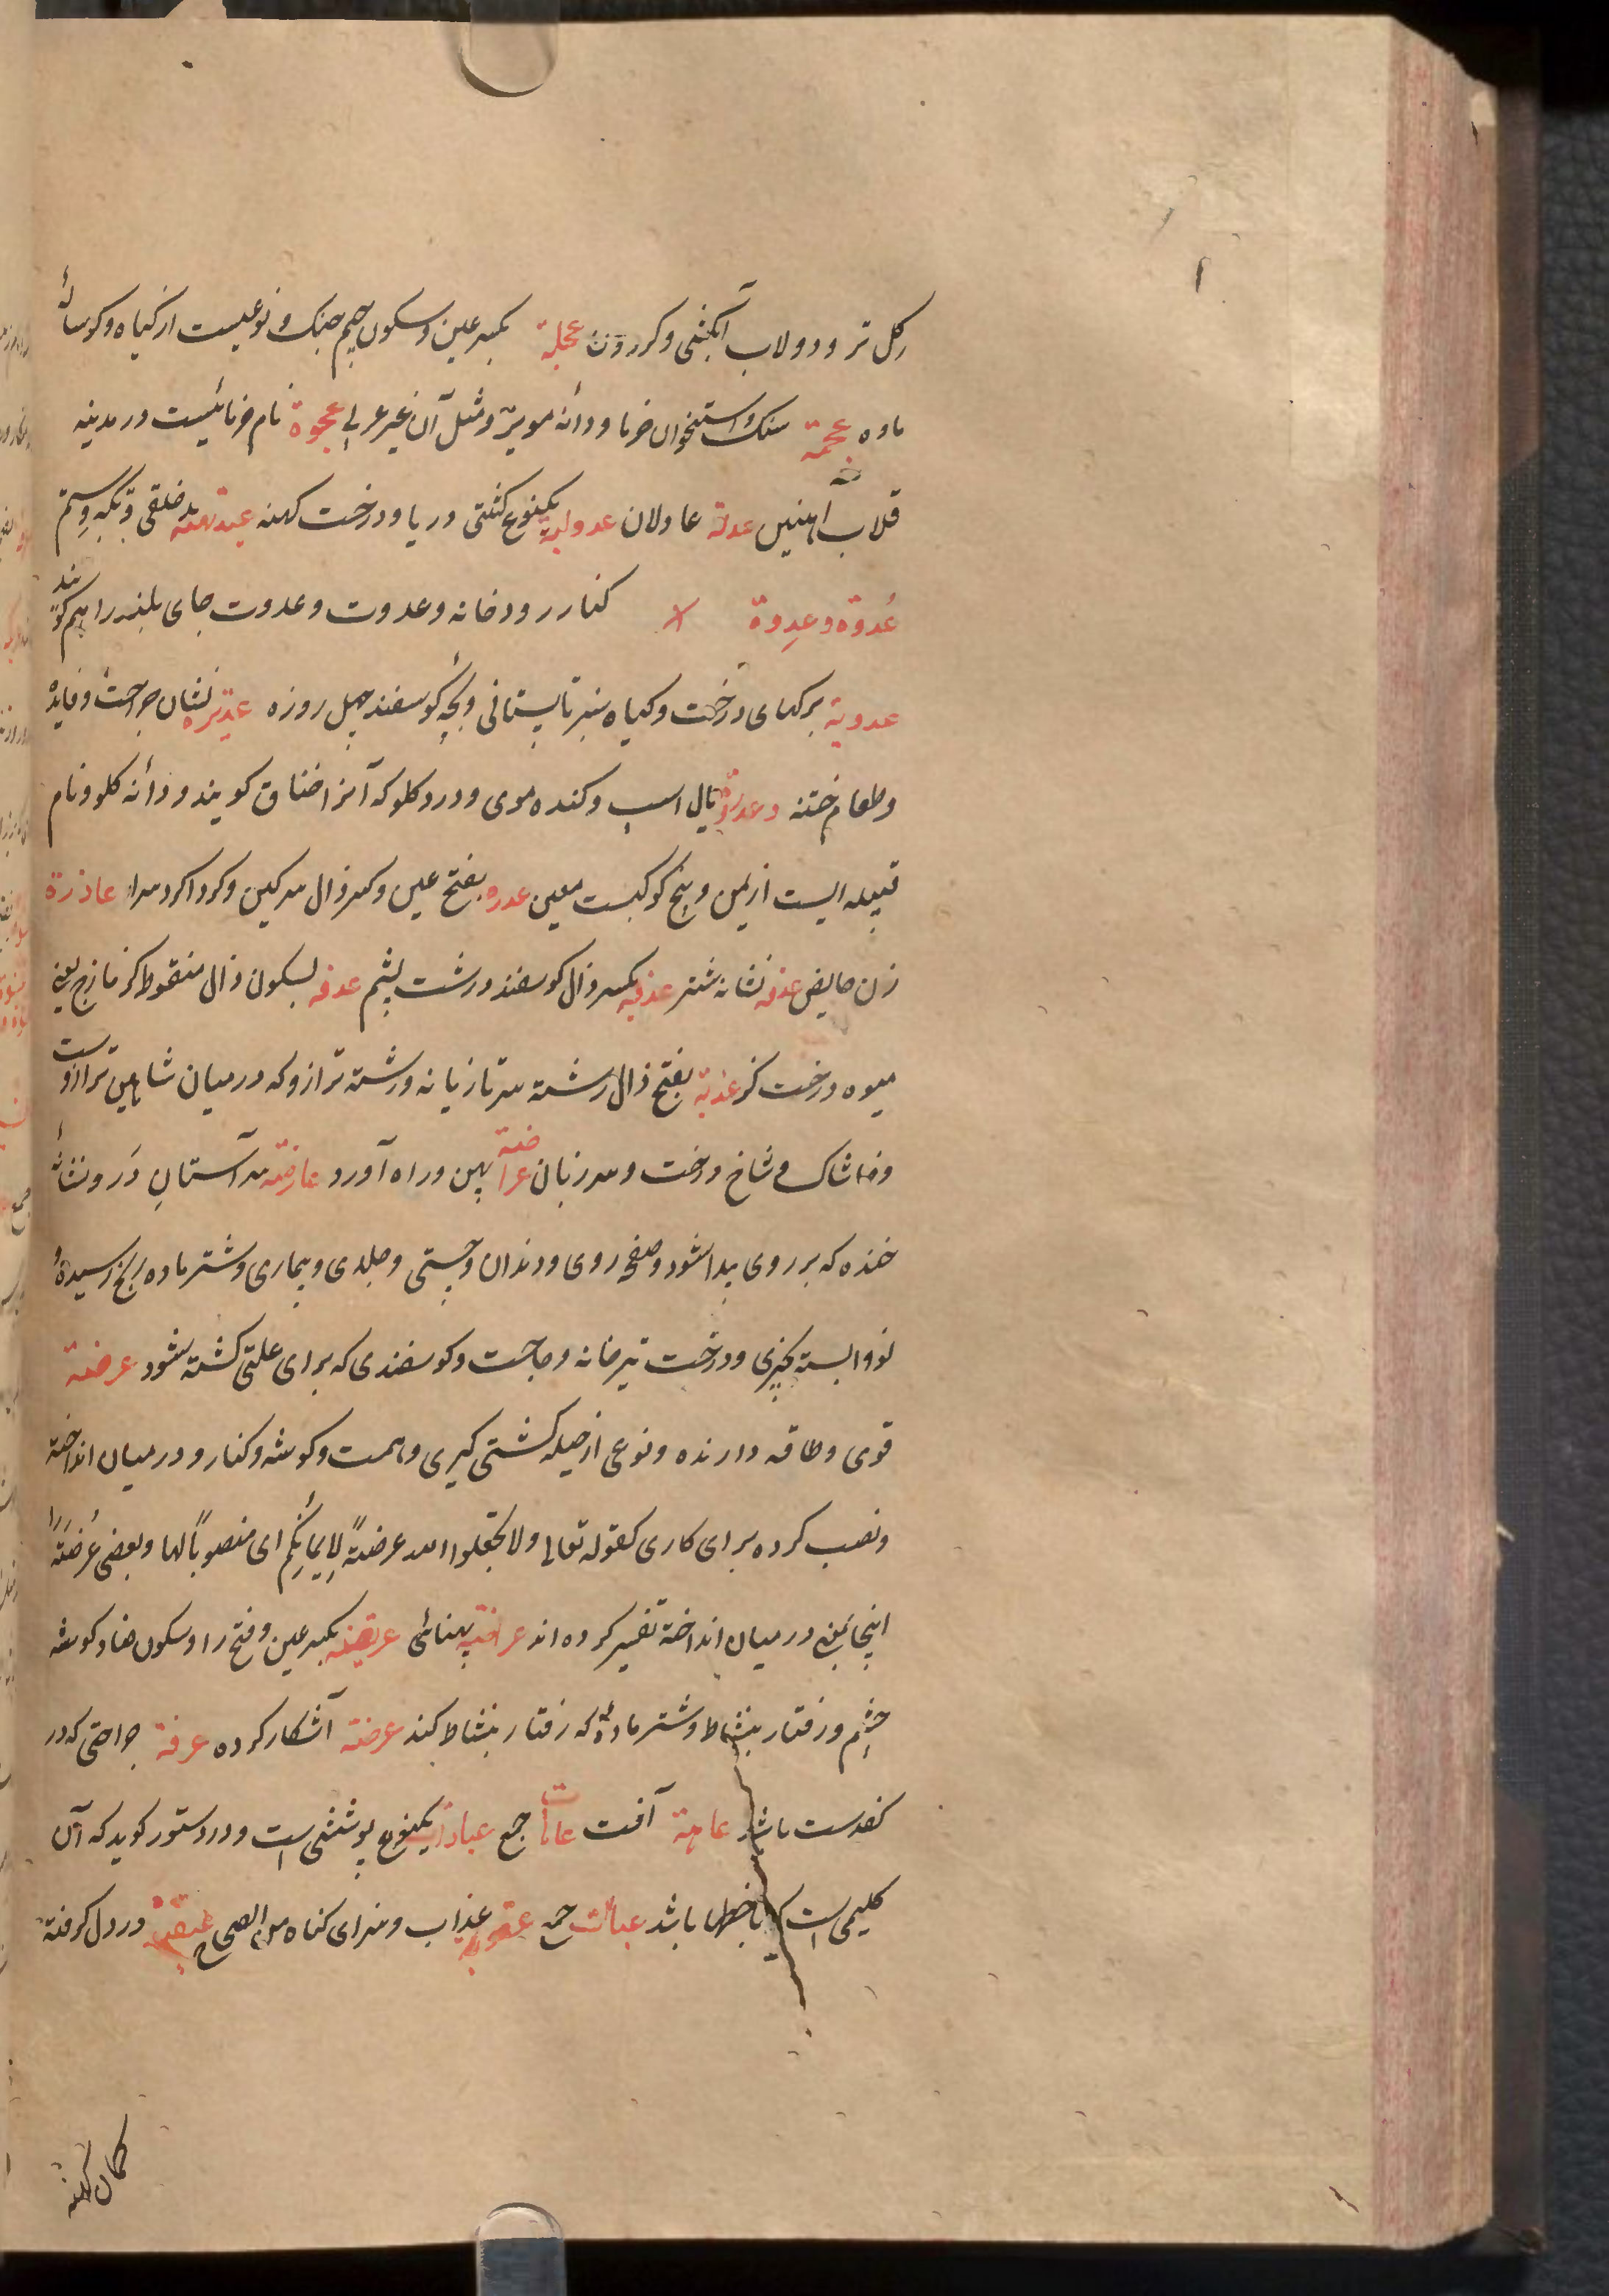 و کل تر و دولاب آبکشی و کردون عجلة بکسر عین و سکون جیم جنک و نوعیست از کیاه و کوسالهٔ
ماده عجمة سنک و استخوان خرما و دانه مویز و مثل آن غیر عربی عجوة نام خرمائیست در مدینه
قلاب آهنین عدلة عادلان عدولیة یکنوع کشتی دریا و درخت کهنه بد خلقی و تکبر و ستم
عُدوة و عِدوة کنار رودخانه و عدوت و عدوت جای بلند را هم کویند
عدویة برکهای درخت و کیاه سبز تابستانی و بچهٔ کوسفند چهل روزه عذیره نشان جراحت و فایده
و طعام ختنه و عذرة یال اسب و کنده موی و درد کلو که آنرا خناق کویند و دانه کلو و نام
قبیله ایست از یمن و پنج کوکبست معین عذره بفتح عین و کسر ذال سرکین و کرداکرد سرا عاذرة
زن حایض عذقه نشانه شتر عذقه بکسر ذال کوسفند درشت پشم عذبه بسکون ذال منقوط کزمازج یعنی
میوه درخت کز عذبة بفتح ذال رشته سر تازیانه و رشته ترازو که در میان شاهین ترازوست
و خاشاک و شاخ درخت و سر زبان عراضة پهن و راه آورد عارضة سر آستان در و نشانهٔ
خنده که بر روی پیدا شود و صفحهٔ روی و دندان و چستی و جلدی و بیماری و شتر ماده رنج رسیده و
نو وابسته بچیزی و درخت تیر خانه و حاجت و کوسفندی که برای علتی کشته شود عرضة
قوی و طاقه دارنده و نوعی از حیله کشتی کیری و همت و کوشه و کنار و در میان انداخته
و نصب کرده برای کاری کقوله تعالی ولا تجعلوا الله عرضةً لِایمانِکُم ای منصوباً لها و بعضی عُرضَة را
اینجا بمعنی در میان انداخته تفسیر کرده اند عراضة پهنائی عریضه بکسر عین و فتح را و سکون ضاد کوشه
چشم و رفتار بنشاط و شتر مادهٔ که رفتار بنشاط کند عرضة آشکار کرده عرفة جراحتی که در
کف دست باشد عاهة آفت عاهات جمع عباءة یکنوع پوششی است و در دستور کوید که آن
کلیمی است که با خطها باشد عباآت جمع عقوبة عذاب و سزای کناه من الصحاح در دل کرفته
کمان کهنه